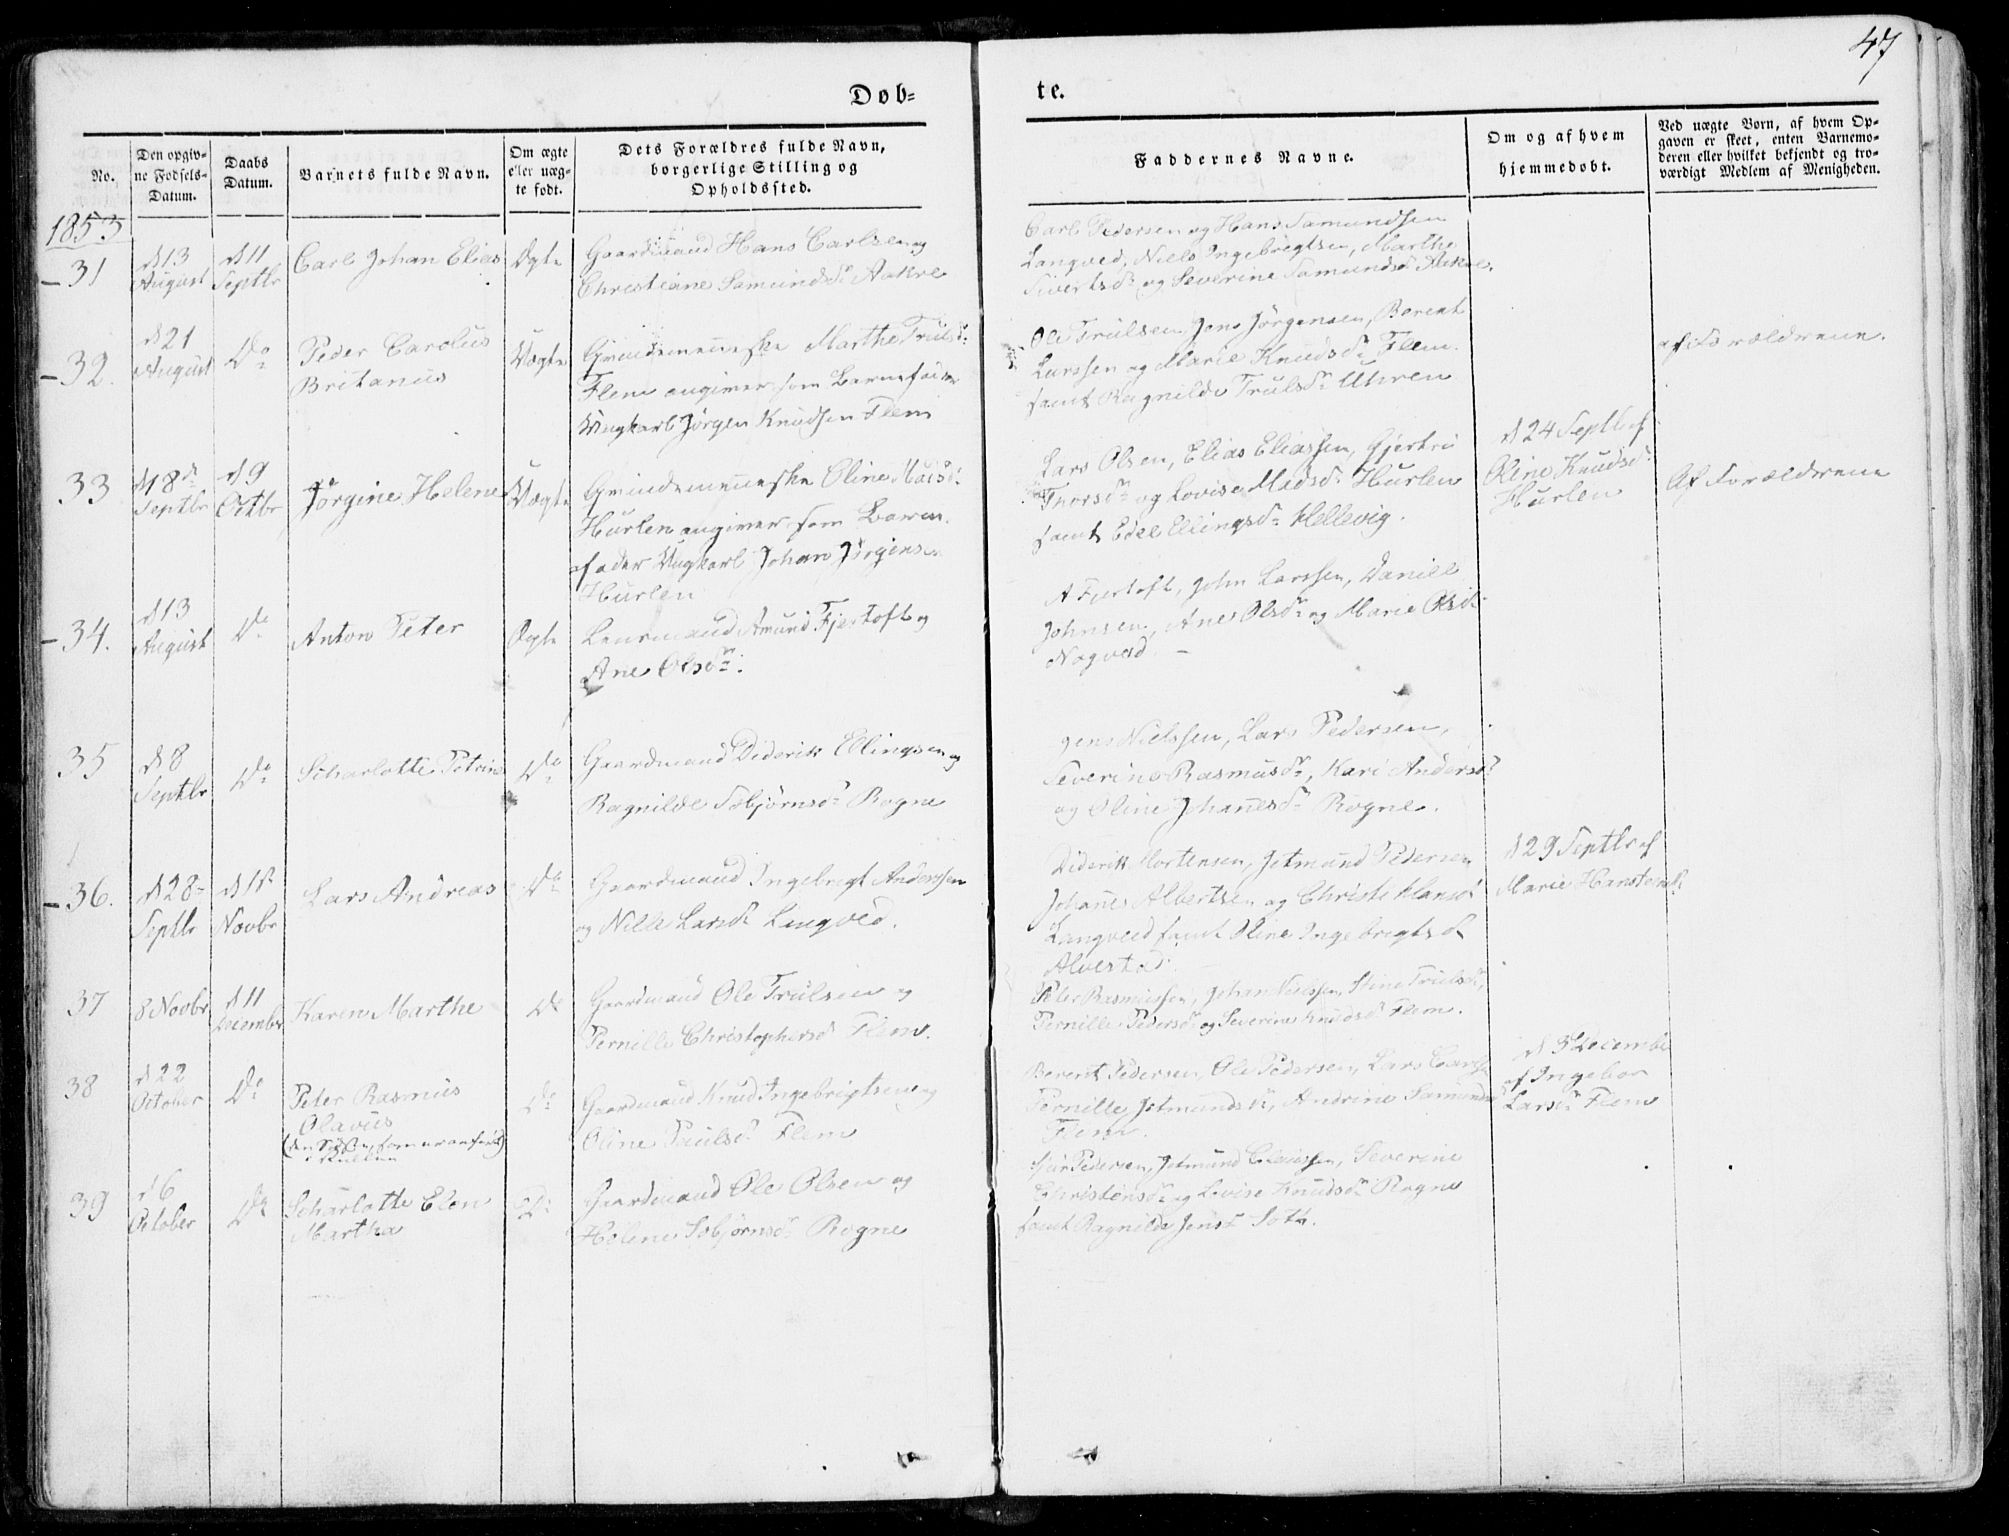 47
Døb=
te.
No.
Den opgiv-
ne Fødsels-
Datum.
Daabs
Datum.
Barnets fulde Navn.
Om ægte
eller uæg-
te født.
Dets Forældres fulde Navn,
borgerlige Stilling og
Opholdssted.
Faddernes Navne.
Om og af hvem
hjemmedøbt.
Ved uægte Børn, af hvem Op-
gaven er skeet, enten Barnemo-
deren eller hvilket bekjendt og tro-
værdigt Medlem af Menigheden.
1853
31
d 13
August
d 11
Septbr
Carl Johan Elias
Ægte
Gaardmand Hans Carlsen og
Christiane Samundsdr Aakre
Carl Pedersen og Hans Samundsen
Langved, Niels Ingebrigtsen, Marthe
Sivertsdr og Severine Samundsdr Aakre.
32.
d 21
August
Do
Peder Carolus
Britanus
Uægte
Qvindemenneske Marthe Trulsdr
Flem angiver som Barnefader
Ungkarl Jørgen Knudsen Flem
Ole Trulsen, Jens Jørgensen, Berent
Larssen og Marie Knudsdr Flem
samt Ragnilde Trulsdr Uhren
af Forældrene.
33
d 18de
Septbr
d 9
Octbr
Jørgine Helene
Uægte
Qvindemenneske Oline Madsdr
Hurlen angiver som Barne-
fader Ungkarl Johan Jørgensen
Hurlen
Lars Olsen, Elias Eliassen, Gjertru
Thorsdr og Lovise Madsdr Hurlen
samt Edel Ellingsdr Hellevig.
d 24 Septb af
Oline Knudsdr
Hurlen
Af Forældrene
34.
d 13
August
Do
Anton Peter
Ægte
Lensmand Amund Fjertoft og
Ane Olsdr.
A Fjertoft, John Larssen, Daniel
Johnsen, Ane Olsdr og Marie Olsdr
Nogved. –
35
d 8
Septbr
Do
Scharlotte Petrine
Do
Gaardmand Diderik Ellingsen og
Ragnilde Sobjørnsdr Rogne
Jens Nielssen, Lars Pedersen,
Severine Rasmusdr, Kari Andersdr
og Oline Johanesdr Rogne.
36.
d 28
Septbr
d 1st
Novbr
Lars Andreas
Do
Gaardmand Ingebrigt Anderssen
og Nille Larsdr Langved.
Diderik Mortensen, Jetmund Pedersen
Johanes Albertsen og Christi Hansdr
Langved samt Oline Ingebrigtsdr
Alvestad.
d 29 Septbr af
Marie Hanstensdr
37
8 Novbr
d 11
December
Karen Marthe
Do
Gaardmand Ole Trulsen og
Pernille Christophersdr Flem.
Peter Rasmussen, Johan Nielssen, Stine Trulsdr,
Pernille Pedersdr og Severine Knudsdr Flem.
38
d 22
October
Do
Peter Rasmus
Olavus
Do
Gaardmand Knud Ingebrigtsen og
Oline Paulsdr Flem
Berent Pedersen, Ole Pedersen, Lars
Pernille Jetmundsdr, Andrine Samundsdr
Flem.
d 3 Decembr
af Ingebor
Larsdr Flem
39
d 6
October
Do
Scharlotte Elen
Martha
Do
Gaardmand Ole Olsen og
Helene Sobjørnsdr Rogne
Sjur Pedersen, Jetmund Claussen, Severine
Christensdr og Lovise Knudsdr Rogne
samt Ragnilde Jensdr